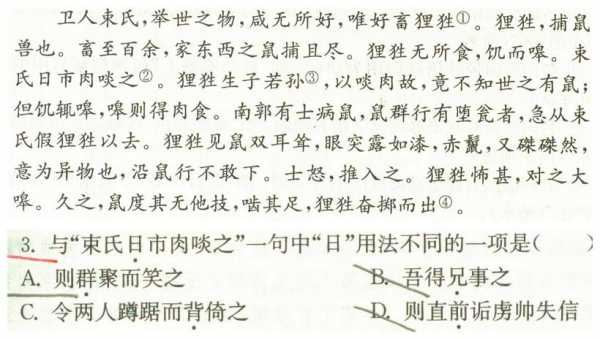 卫人束氏,举世之物,咸无所好,唯好畜狸狌①。狸狌,捕鼠
兽也。畜至百余,家东西之鼠捕且尽。狸狌无所食,饥而嗥。束
氏日市肉啖之②。狸狌生子若孙③,以啖肉故,竟不知世之有鼠;
但饥辄嗥,嗥则得肉食。南郭有士病鼠,鼠群行有堕瓮者,急从束
氏假狸狌以去。狸狌见鼠双耳耸,眼突露如漆,赤鬣,又磔磔然,
意为异物也,沿鼠行不敢下。士怒,推入之。狸狌怖甚,对之大
嗥。久之,鼠度其无他技,啮其足,狸狌奋掷而出④。
3. 与“束氏日市肉啖之”一句中“日”用法不同的一项是( )
A. 则群聚而笑之 B. 吾得兄事之
C. 令两人蹲踞而背倚之 D. 则直前诟虏帅失信